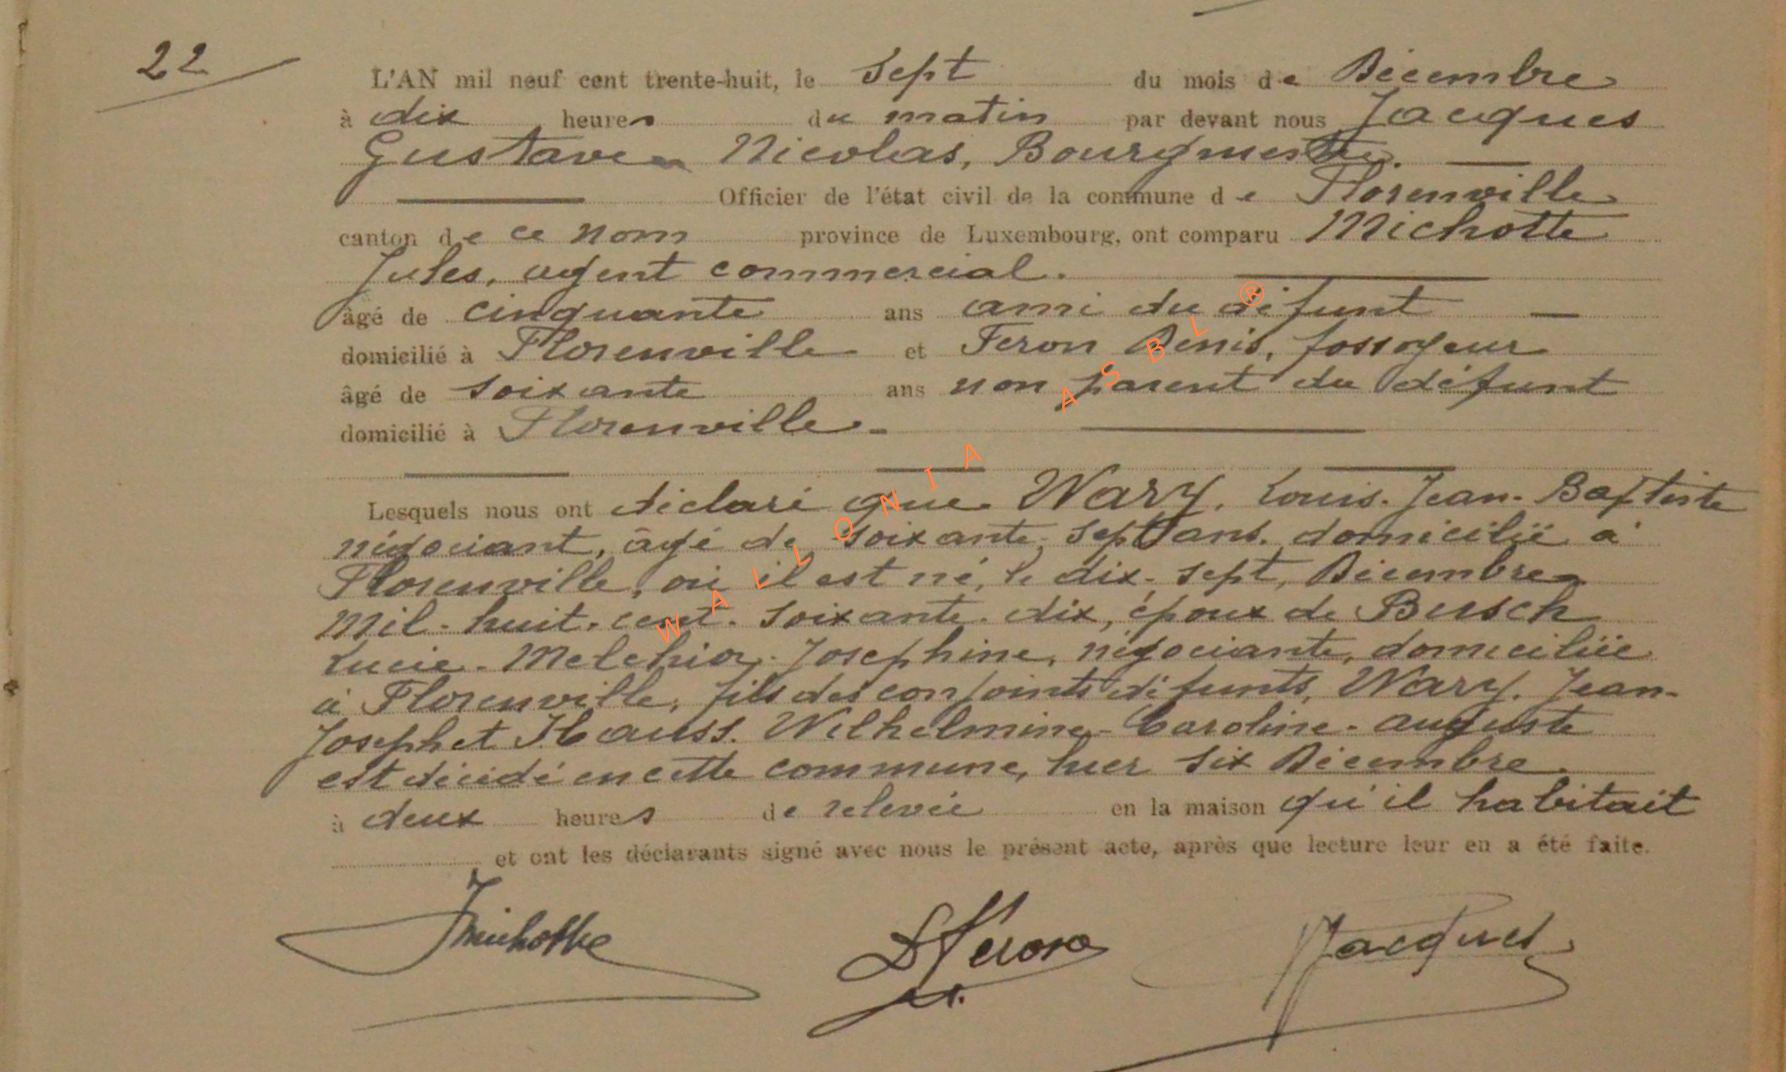 22
L'AN mil neuf cent trente-huit, le Sept du mois de Décembre
à dix heures du matin par devant nous Jacques
Gustave Nicolas, Bourgmestre.
Officier de l'état civil de la commune de Florenville
canton de ce nom province de Luxembourg, ont comparu Michotte
Jules, agent commercial.
âgé de cinquante ans ami du défunt
domicilié à Florenville et Feron Denis, fossoyeur
âgé de soixante ans non parent du défunt
domicilié à Florenville
Lesquels nous ont déclaré que Wary, Louis-Jean-Baptiste
négociant, âgé de soixante-sept ans, domicilié à
Florenville, où il est né, le dix-sept, Décembre
Mil-huit-cent-soixante-dix, époux de Busch
Lucie-Melchior-Josephine, négociante, domiciliée
à Florenville, fils des conjoints défunts, Wary, Jean-
Joseph et Hauss, Wilhelmine-Caroline-Auguste
est décédé en cette commune, hier six Décembre
à deux heures de relevée en la maison qu'il habitait
et ont les déclarants signé avec nous le présent acte, après que lecture leur en a été faite.
JMichotte DFeron Jacques
WALLONIA ASBL ®